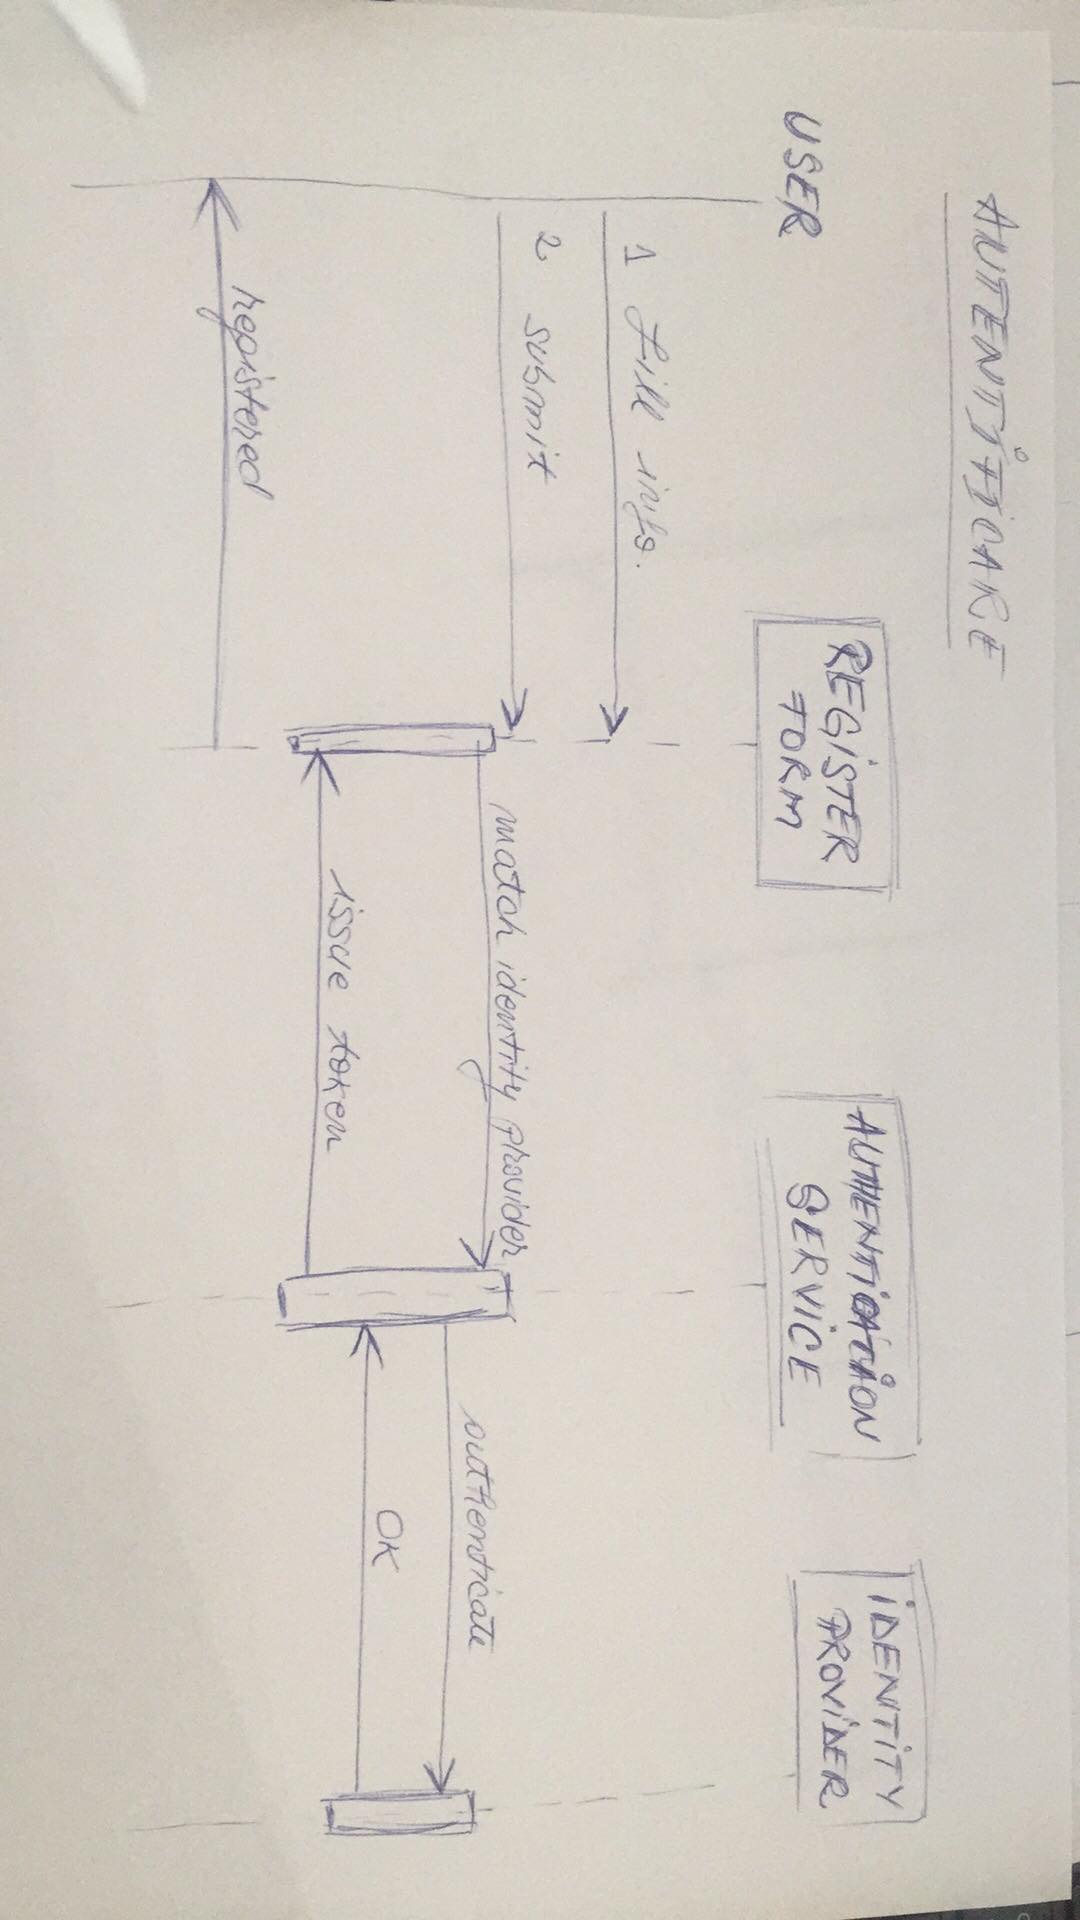 AUTENTIFICARE
USER
REGISTER
FORM
AUTHENTICATION
SERVICE
IDENTITY
PROVIDER
1 fill info.
2 submit
match identity provider
authenticate
OK
issue token
registered